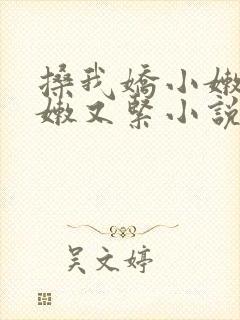 搡我嬌小嫩
嫩又緊小說
吴文婷